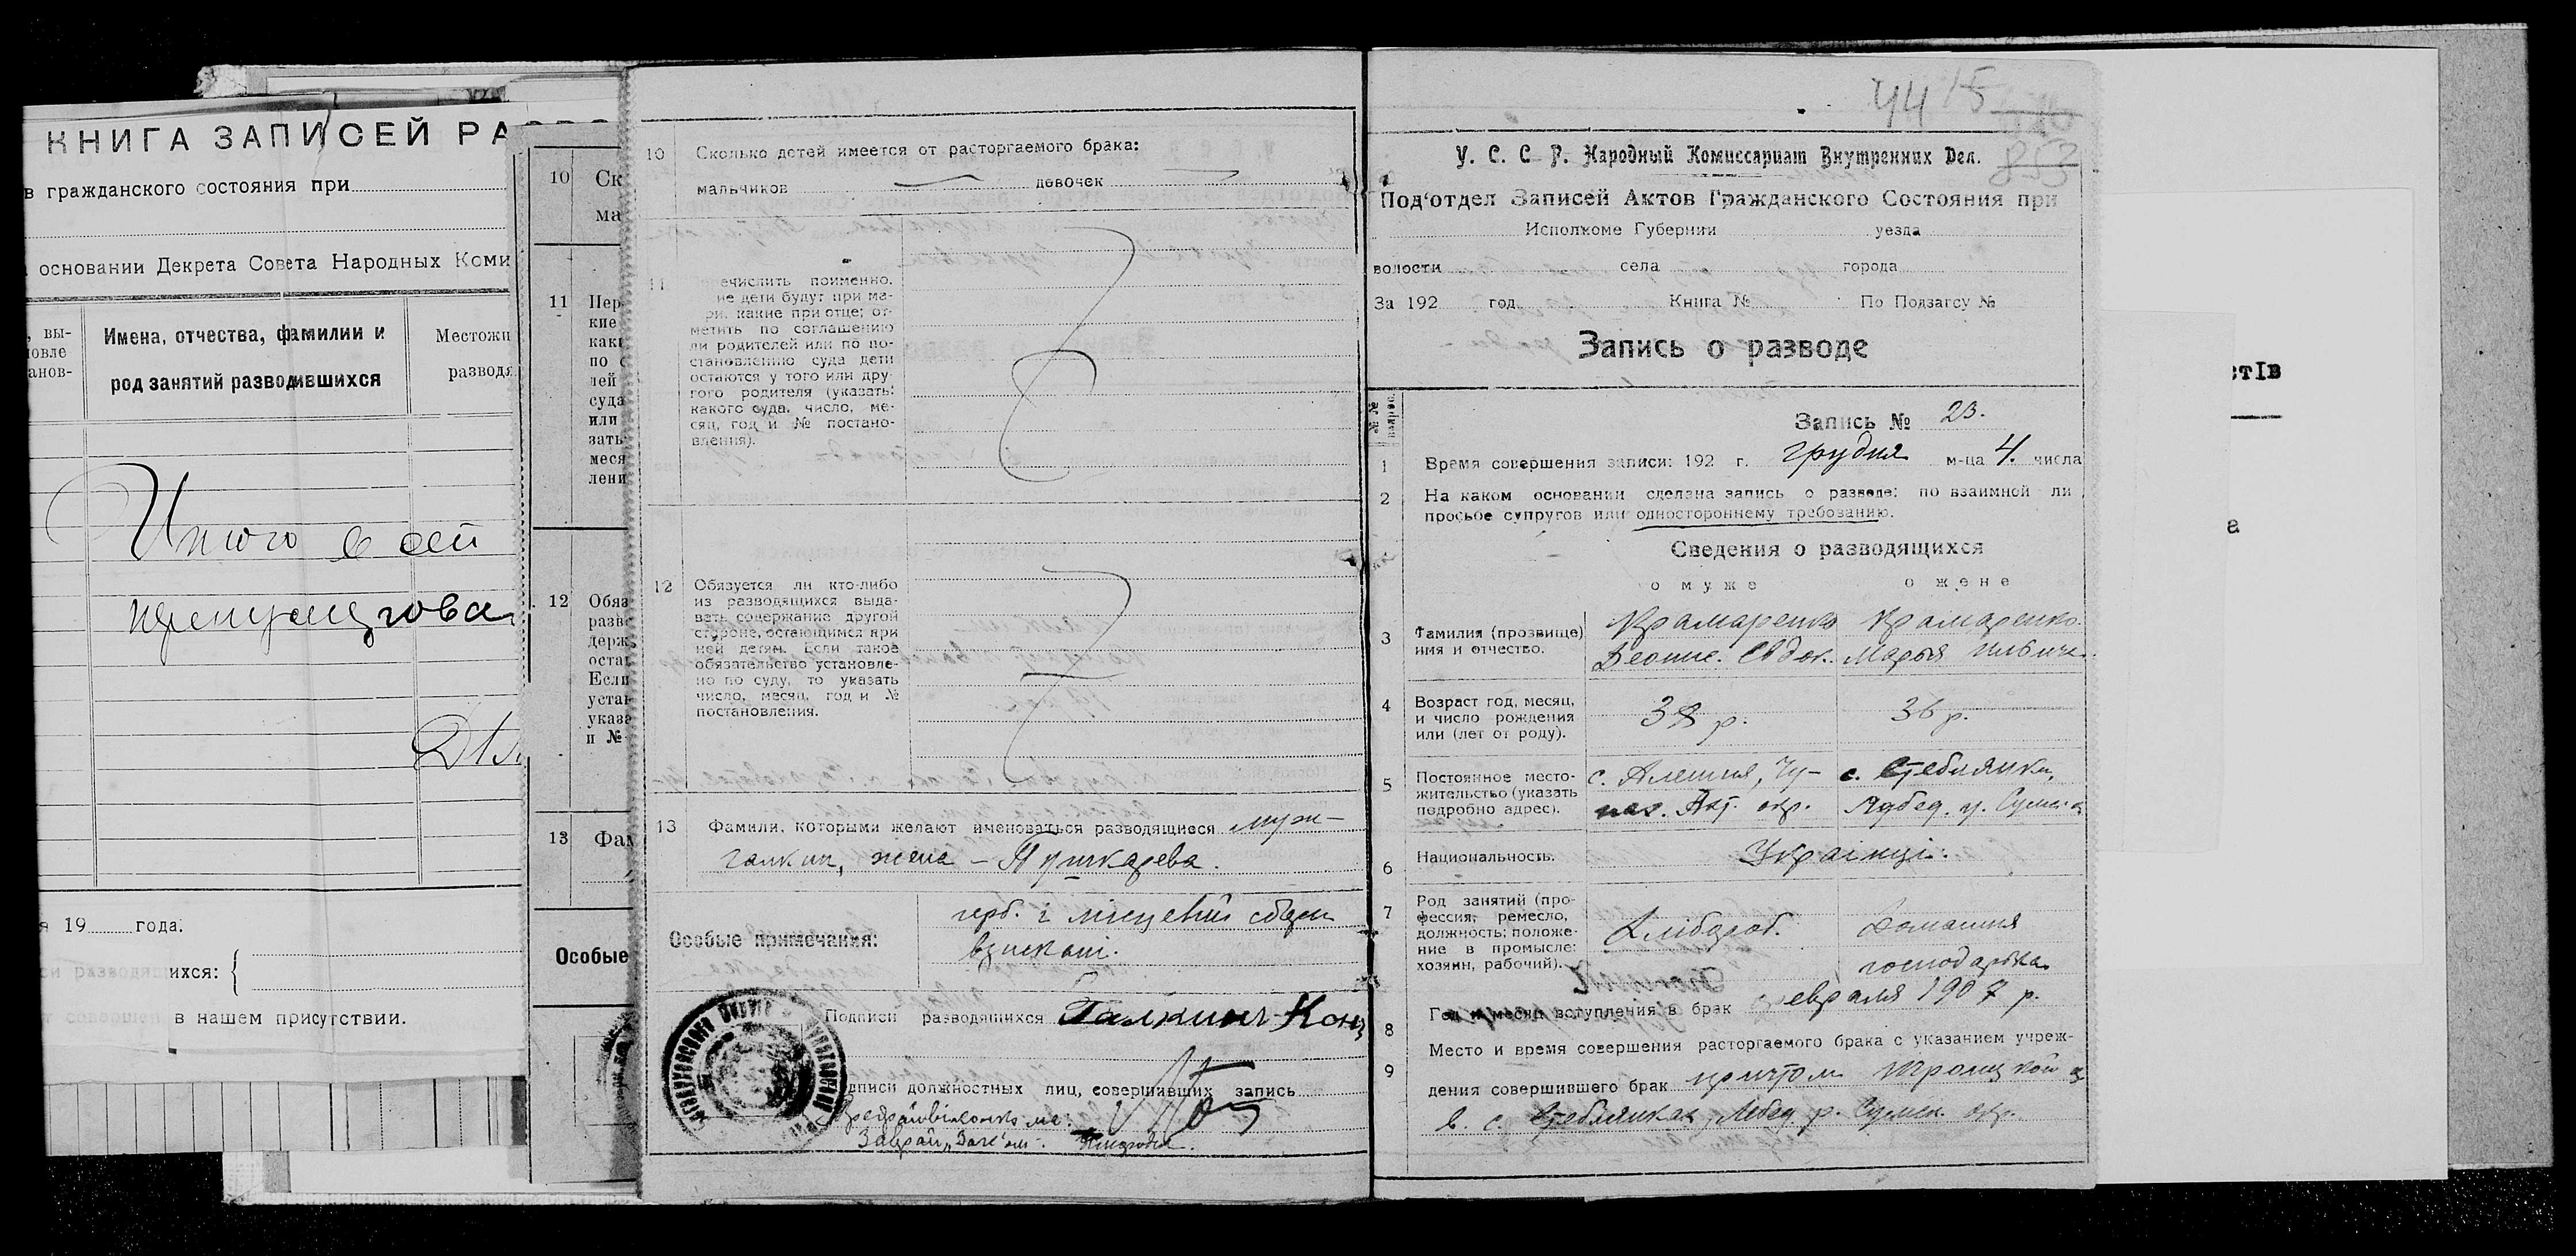 КНИГА ЗАПИСЕЙ
в гражданского состояния при
основании Декрета Совета Народных Коми
Имена, отчества, фамилии и
род занятий разводившихся
Местожи
разводя
Итого в сей
пронумерова
19 года.
ихся:
в нашем присутствии.
10 Ск
ма
11 Пер
кие
каки
по с
лей
суда
или
зать
меся
лени
12 Обяз
разво
держ
остан
Если
устан
указа
и №
13 Фам
Особые
10 Сколько детей имеется от расторгаемого брака:
мальчиков — девочек —
11 ечислить поименно,
ие дети будут при ма-
ри, какие при отце; от-
метить по соглашению
ли родителей или по по-
становлению суда дети
остаются у того или дру-
гого родителя (указать:
какого суда, число, ме-
сяц, год и № постано-
вления).
12 Обязуется ли кто-либо
из разводящихся выда-
вать содержание другой
стороне, остающимся при
ней детям. Если такое
обязательство установле-
но по суду, то указать
число, месяц, год и №
постановления.
13 Фамилии, которыми желают именоваться разводящиеся муж —
Галкин, жена — Пушкарева.
Особые примечания:
герб. і місцевий збори
взискані.
Подписи разводящихся Галкин
дписи должностных лиц, совершивших запись
44 15
853
У. С. С. Р. Народный Комиссариат Внутренних Дел.
Под‘отдел Записей Актов Гражданского Состояния при
Исполкоме Губернии уезда
волости села города
За 192 год Книга № По Подзагсу №
Запись о разводе
№ № вопрос.
Запись № 23.
1 Время совершения записи: 192 г. грудня м-ца 4. числа
2 На каком основании сделана запись о разводе: по взаимной ли
просьбе супругов или одностороннему требованию.
Сведения о разводящихся
о муже о жене
3 Фамилия (прозвище) имя и отчество.
Крамаренко Крамаренко
Марья
4 Возраст год, месяц,
и число рождения
или (лет от роду).
38 р. 36 р.
5 Постоянное место-
жительство (указать
подробно адрес).
с. Алешня, Чу- с. Стеблянки,
пах. Ахт. окр.
6 Национальность. Українці.
7 Род занятий (про-
фессия, ремесло,
должность; положе-
ние в промысле:
хозяин, рабочий).
Хлібороб. Домашня
господарка
8 Год и месяц вступления в брак февраля 1907 р.
9 Место и время совершения расторгаемого брака с указанием учреж-
дения совершившего брак причтом Троицкой ц.
в. с. Стеблянках, Лебед. р. Сумск. окр.
стІв
а